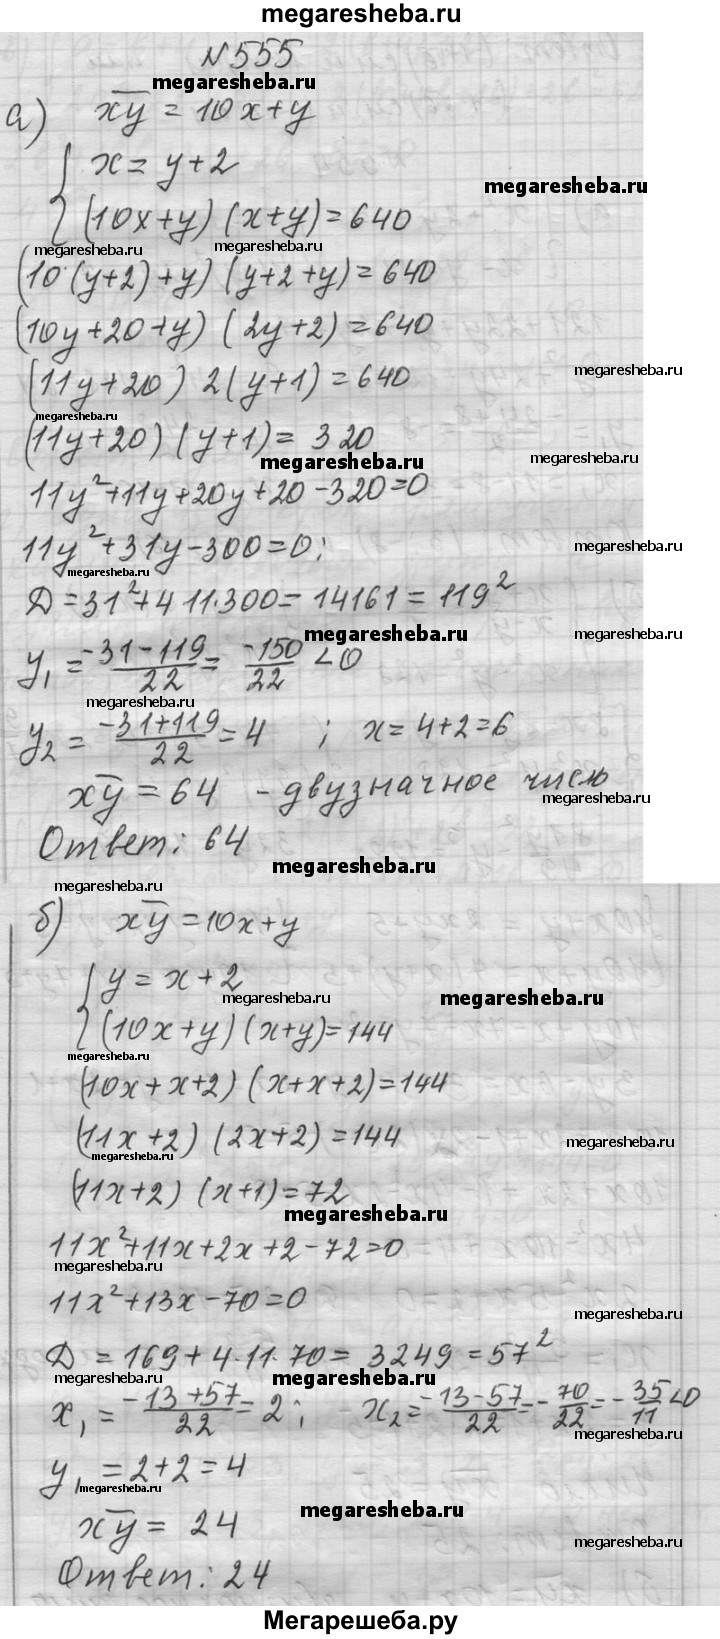 megaresheba.ru
№555
megaresheba.ru
а) xy = 10x+y
x = y+2
megaresheba.ru
(10x+y) (x+y)=640
megaresheba.ru megaresheba.ru
(10·(y+2)+y) (y+2+y)=640
(10y+20+y) (2y+2)=640
megaresheba.ru
(11y+20) 2(y+1)=640
megaresheba.ru
(11y+20) (y+1)= 320
megaresheba.ru megaresheba.ru
11y²+11y+20y+20-320=0
11y²+31y-300=0;
megaresheba.ru
megaresheba.ru
Д=31²+4 11·300=14161=119²
megaresheba.ru
y₁ = -31-119/22 = -150/22 <0
megaresheba.ru
y₂ = -31+119/22 = 4 ; x=4+2=6
xy = 64 - двузначное число
megaresheba.ru
Ответ: 64
megaresheba.ru
megaresheba.ru
б) xy=10x+y
y = x+2
megaresheba.ru megaresheba.ru
(10x+y) (x+y)=144
megaresheba.ru
(10x+x+2) (x+x+2)=144
(11x+2) (2x+2)=144
megaresheba.ru
megaresheba.ru
(11x+2) (x+1)=72
megaresheba.ru
11x²+11x+2x+2-72=0
megaresheba.ru
11x²+13x-70=0
megaresheba.ru
Д = 169+4·11·70= 3249=57²
megaresheba.ru megaresheba.ru
x₁ = -13+57/22 = 2; x₂= -13-57/22 = -70/22 = -35/11 <0
megaresheba.ru
y₁ = 2+2=4
megaresheba.ru
megaresheba.ru
xy = 24
Ответ: 24
Мегарешеба.ру